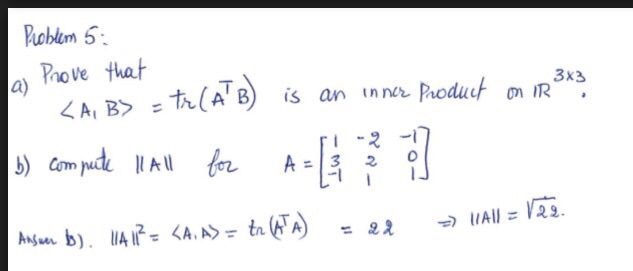 Problem 5:
a) Prove that
<A, B> = tr(AᵀB) is an inner Product on ℝ³ˣ³.
b) compute ||A|| for A = [1 -2 -1; 3 2 0; -1 1 1]
Answer b). ||A||² = <A, A> = tr(AᵀA) = 22 ⇒ ||A|| = √22.